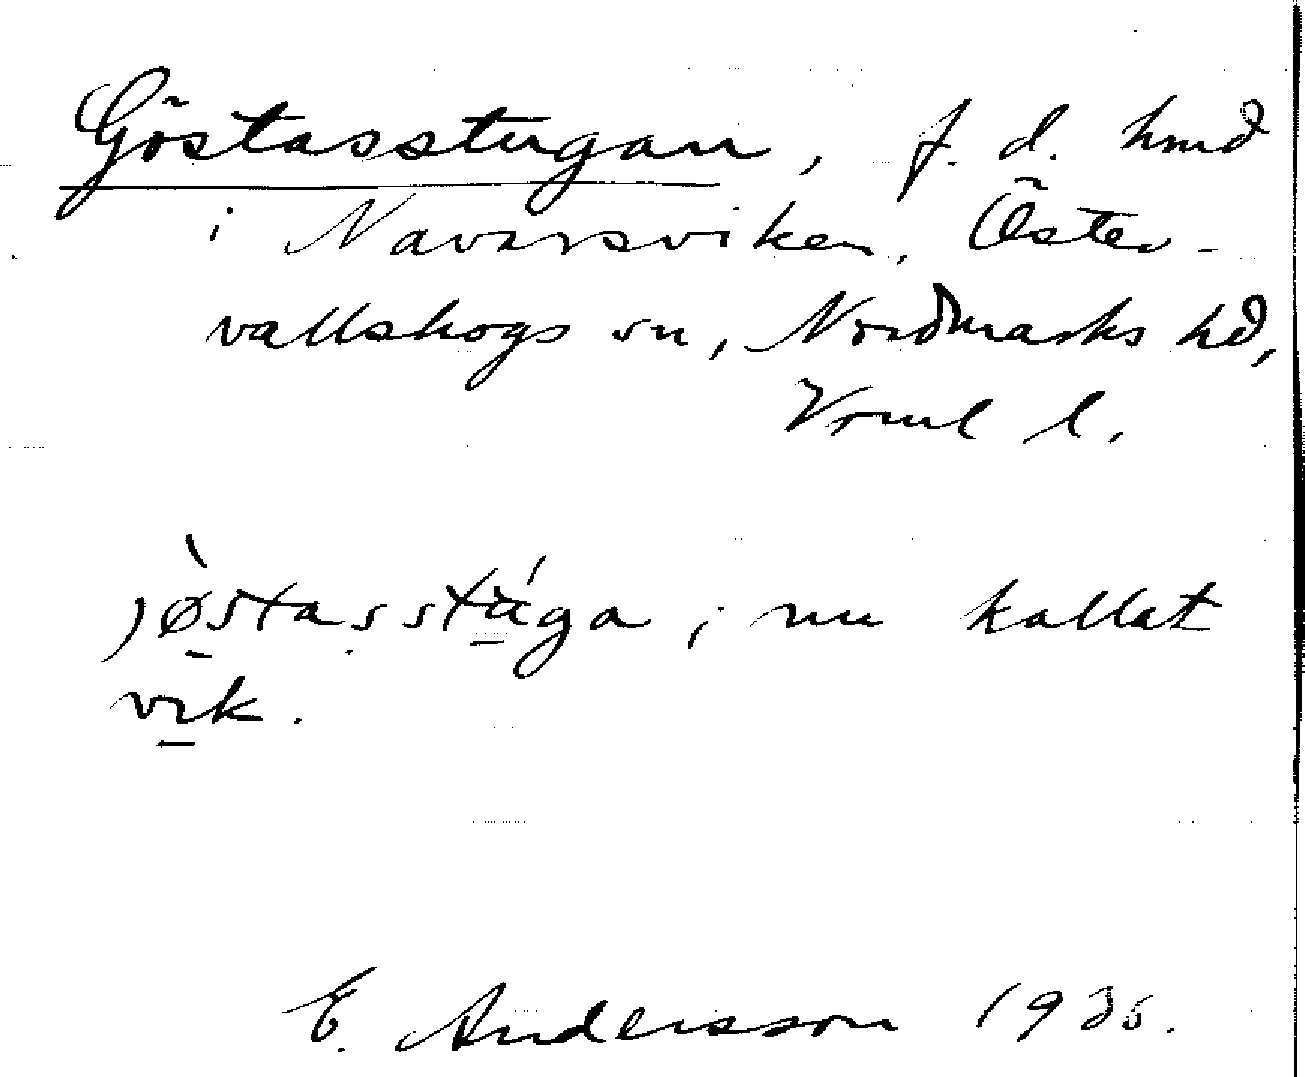 Göstasstugan, f. d. hmd
i Navarsviken, Öster-
vallskogs sn, Nordmarks hd,
Vrml l.
jø̀stasstúga, nu kallat
vik.
E. Andersson 1935.